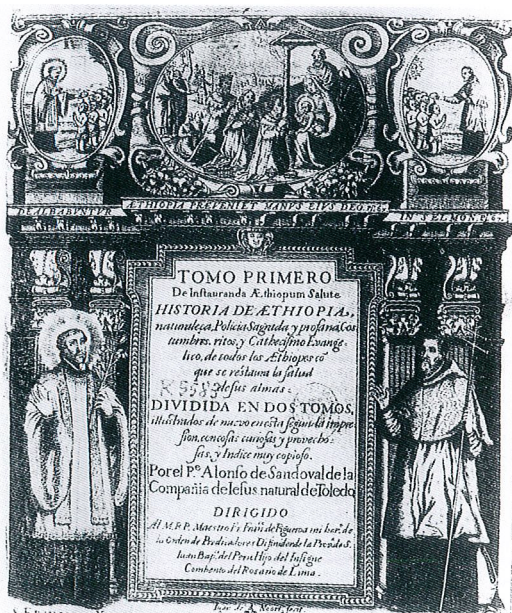 DEALBABVNTVR
ÆTHIOPIA PREVENIET MANVS EIVS DEO. Ps. 67.
IN SELMON &c.
TOMO PRIMERO
De Instauranda Æthiopum Salute
HISTORIA DE ÆTHIOPIA,
naturaleça, Policia Sagrada y profana, Cos
tumbres, ritos, y Cathecismo Evange
lico, de todos los Æthiopes cō
que se restaura la salud
de sus almas.
DIVIDIDA EN DOS TOMOS,
illustrados de nuevo en esta segunda impre
sion, con cosas curiosas y provecho
sas, y Indice muy copioso.
Por el Pe. Alonso de Sandoval de la
Compañia de Iesus natural de Toledo
DIRIGIDO
Al M. R. P. Maestro Fr. Franco de Figueroa mi hero. de
la Orden de Predicadores Difinidor de la Prova. de S.
Iuan Bapta. del Peru Hijo del Insigne
Combento del Rosario de Lima.
Iuan de Noort, fecit.